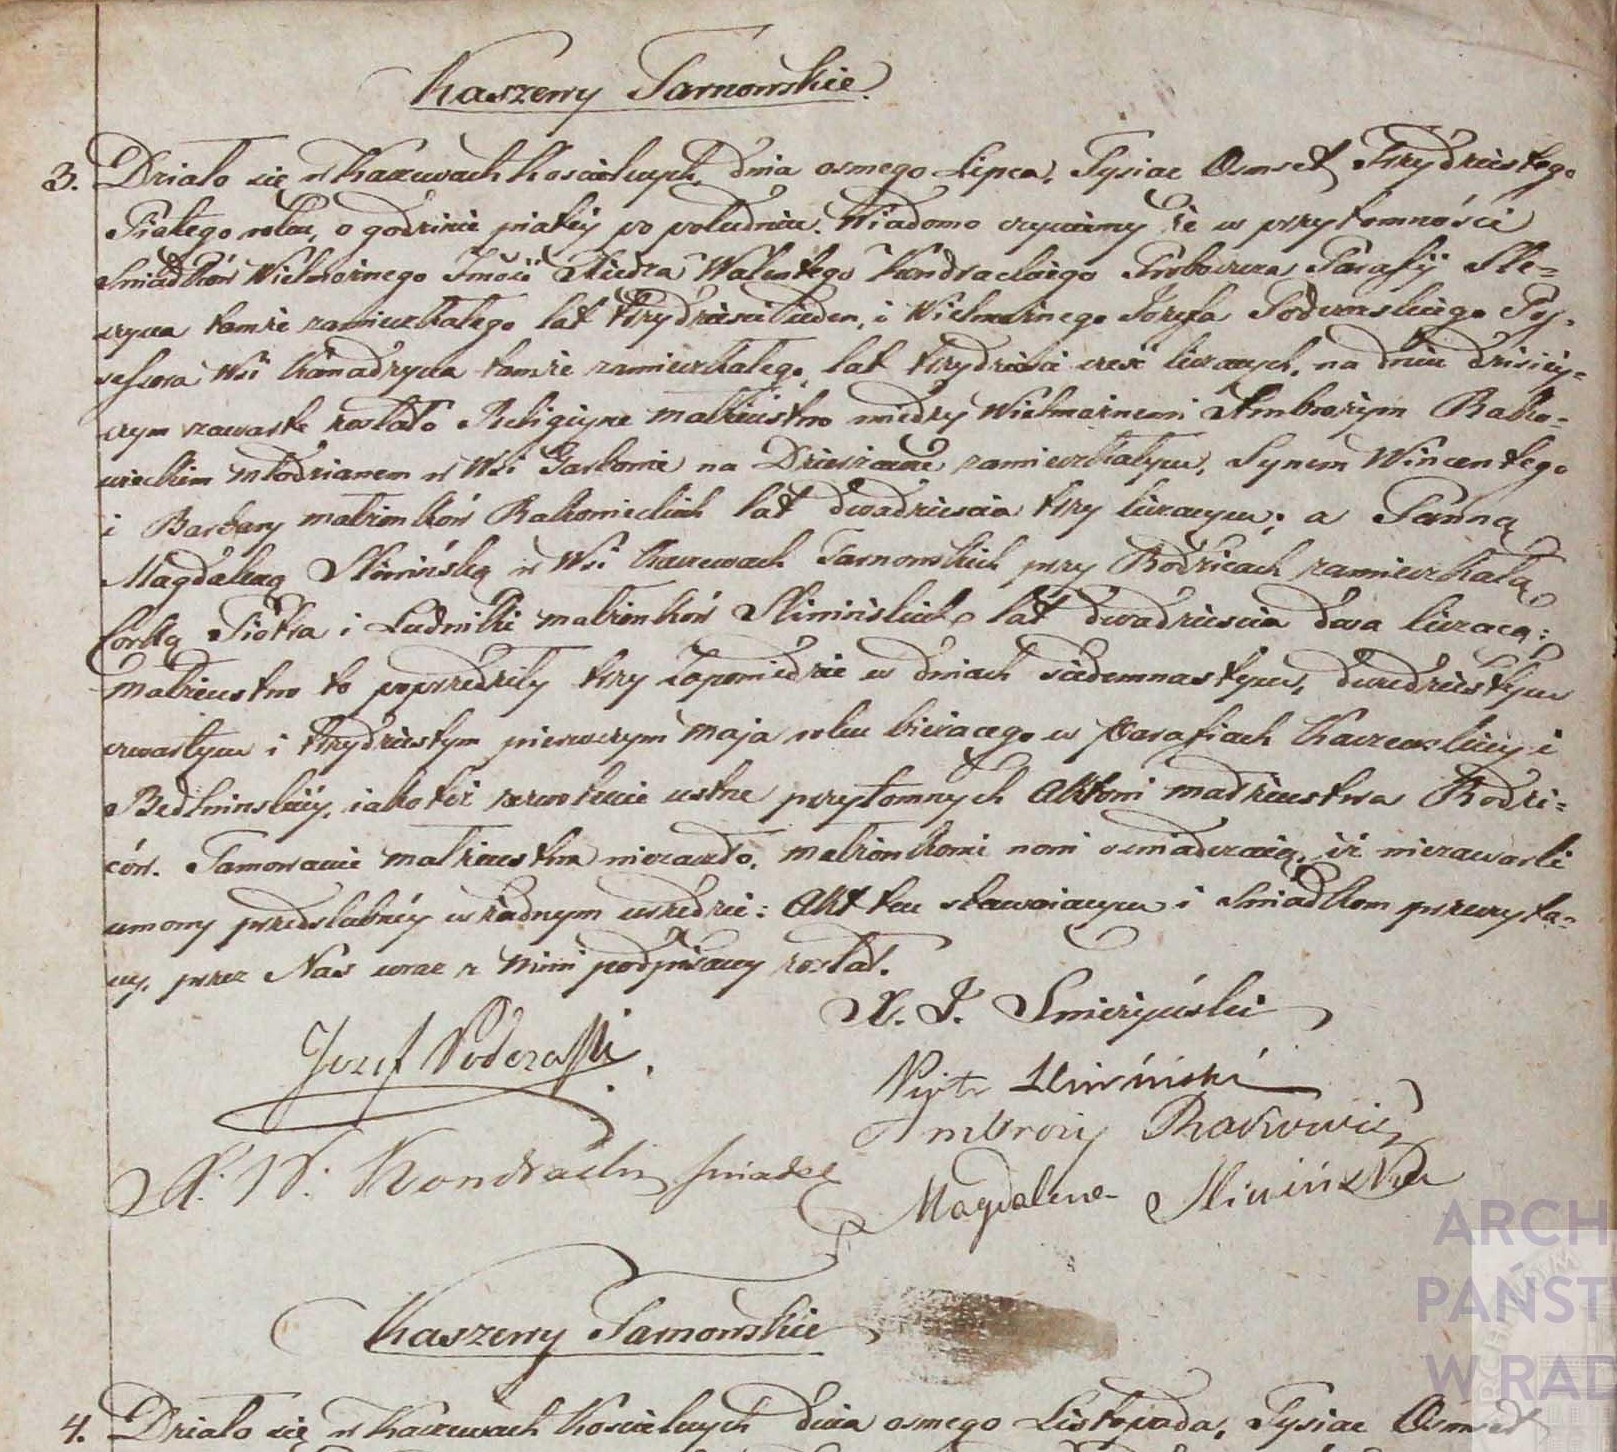 Kaszewy Tarnowskie.
3. Działo się w Kaszewach Kościelnych, dnia osmego Lipca, Tysiąc Osmset Trzydziestego
Piątego roku, o godzinie piątey po południu. Wiadomo czyniemy że w przytomności
Swiadków Wielmożnego Jmości Xiedza Walentego Kondrackiego Proboszcza Parafij Sle-
tamże zamieszkałego lat trzydzieści ieden, i Wielmożnego Józefa Poderaskiego Pos-
sessora Wsi tamże zamieszkałego, lat trzydzieści sześć liczących, na dniu dzisiey-
szym zawarte zostało Religiyne małżeństwo między Wielmożnemi Ambrozym Rako-
wieckim młodzianem w Wsi na zamieszkałym, Synem Wincentego
i Barbary małżonków Rakowieckich lat dwadzieścia trzy liczącym; a Panną
Magdaleną Sliwińską w Wsi Kaszewach Tarnowskich przy Rodzicach zamieszkałą
Corką Piotra i Ludwiki małżonków Sliwińskich lat dwadzieścia dwa liczącą;
małżeństwo to poprzedziły trzy zapowiedzie w dniach siedemnastym, dwudziestym
czwartym i trzydziestym pierwszym Maja roku bieżącego w Parafiach Kaszewskiey i
Bedlninskiey, iakoteż zezwolenie ustne przytomnych Aktowi małżeństwa Rodzi-
ców. Tamowanie małżeństwa niezaszło. małżonkowie nowi oswiadczaią, iż niezawarli
umowy przedslubney w żadnym urzędzie: Akt ten stawaiącym i Swiadkom przeczyta-
ny, przez Nas wraz z nimi podpisany został.
X. J. Smierzyński
Jozef Poderaski.
Piotr Sliwiński
Ambrozy Rakowiecki
X. W. Kondracki swiadek
Magdalena Sliwińska
Kaszewy Tarnowskie
4. Działo się w Kaszewach Kościelnych dnia osmego Listopada, Tysiąc Osmset
ARCH
PAŃST
W RAD